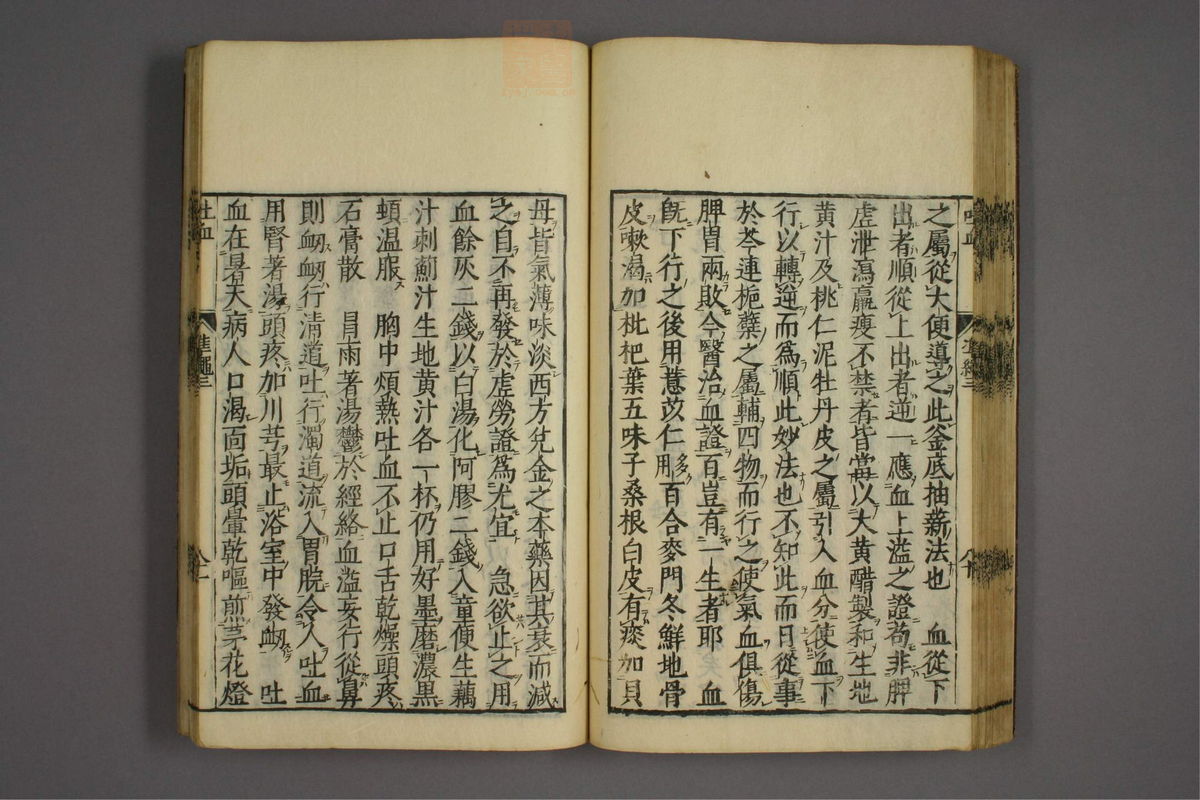 之屬從大便導之此釜底抽薪法也　血從下
出者順從上出者逆一應血上溢之證苟非脾
虛泄瀉羸瘦不禁者皆當以大黃醋製和生地
黃汁及桃仁泥牡丹皮之屬引入血分使血下
行以轉逆而爲順此妙法也不知此而日從事
於芩連梔蘗之屬輔四物而行之使氣血俱傷
脾胃兩敗今醫治血證百豈有一生者耶　血
旣下行之後用薏苡仁多用百合麥門冬鮮地骨
皮嗽渴加枇杷葉五味子桑根白皮有痰加貝
母皆氣薄味淡西方兌金之本藥因其衰而減
之自不再發於虛勞證爲尤宜　急欲止之用
血餘灰二錢以白湯化阿膠二錢入童便生藕
汁刺薊汁生地黃汁各一杯仍用好墨磨濃黑
頓溫服　胸中煩熱吐血不止口舌乾燥頭疼
石膏散　冒雨著湯鬱於經絡血溢妄行從鼻
則衂衂行清道吐行濁道流入胃脘令人吐血
用腎著湯頭疼加川芎最止浴室中發衂　吐
血在暑天病人口渴面垢頭暈乾嘔煎茅花燈
吐血
準繩三